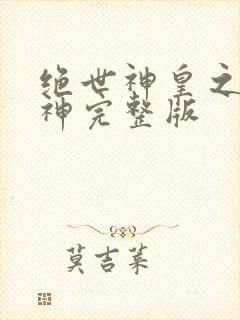 绝世神皇之
神完整版
莫吉莱